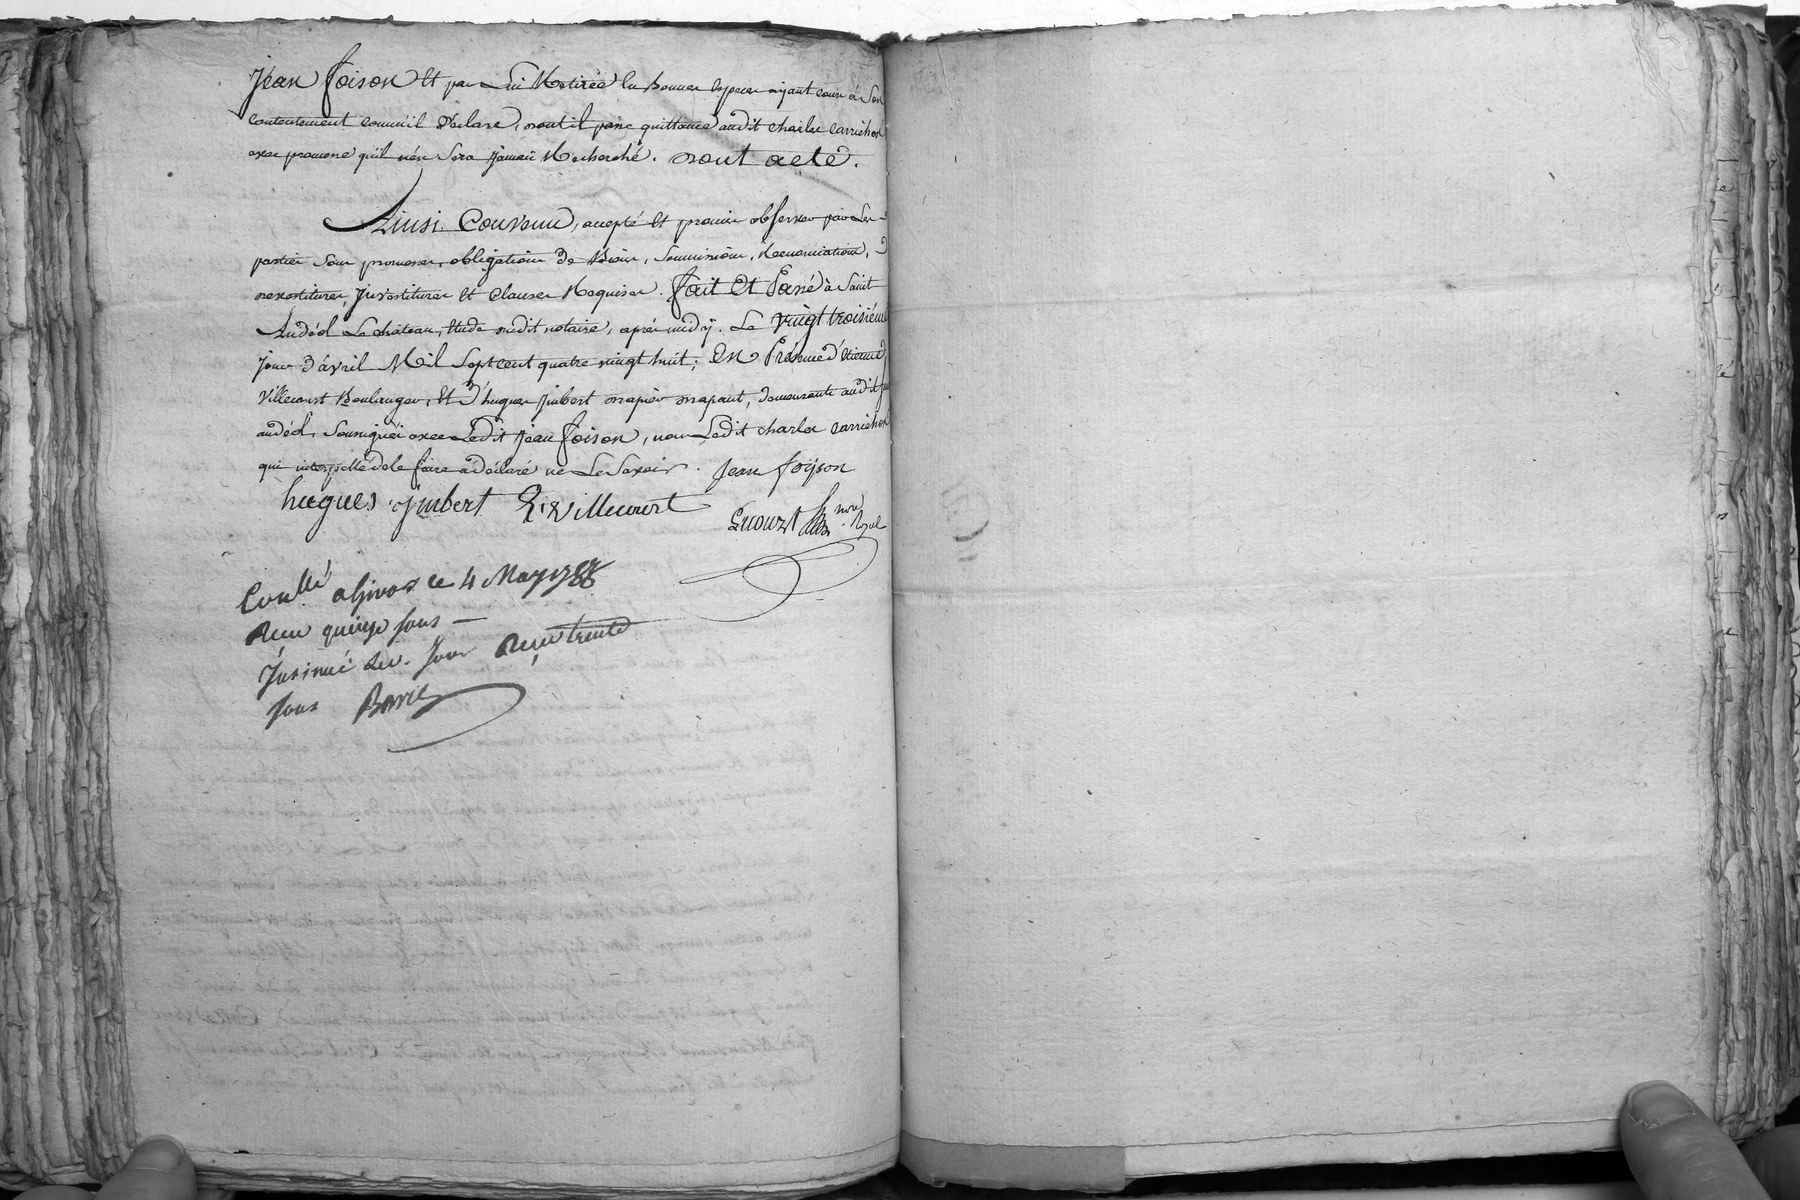 Jean foison Et par Lui Retirée En Bonnes Especes ayant cours à Son
Contentement comm'il Déclare, Dont il passe quittance audit charles carrichon
avec promesse qu'il n'en Sera Jamais Recherché. Dont acte.
Ainsi Convenu, accepté Et promis observer par Les
parties Sous promesses, obligations de Biens, Soumissions, Renonciations, D
devestitures, Jnvestitures Et Clauses Requises. fait Et Passé à Saint
Andéol Le château, Etude dudit notaire, après midÿ. Le vingt troisiéme
jour D'avril Mil Sept cent quatre vingt huit; En Présence d'Etienne
Villecourt Boulanger, Et d'hugues jmbert papier, demeurants audit St
andéol, Soussignés avec Ledit Jean foison, non Ledit charles carrichon
qui interpellé de le faire a déclaré ne Le Savoir. Jean foÿson
hugues jmbert E. Villecourt
nore Royal
Conllé a Givors ce 4 May 1788
Reçu quinze sous
Jnsinué Led. Jour Reçu trente
sous